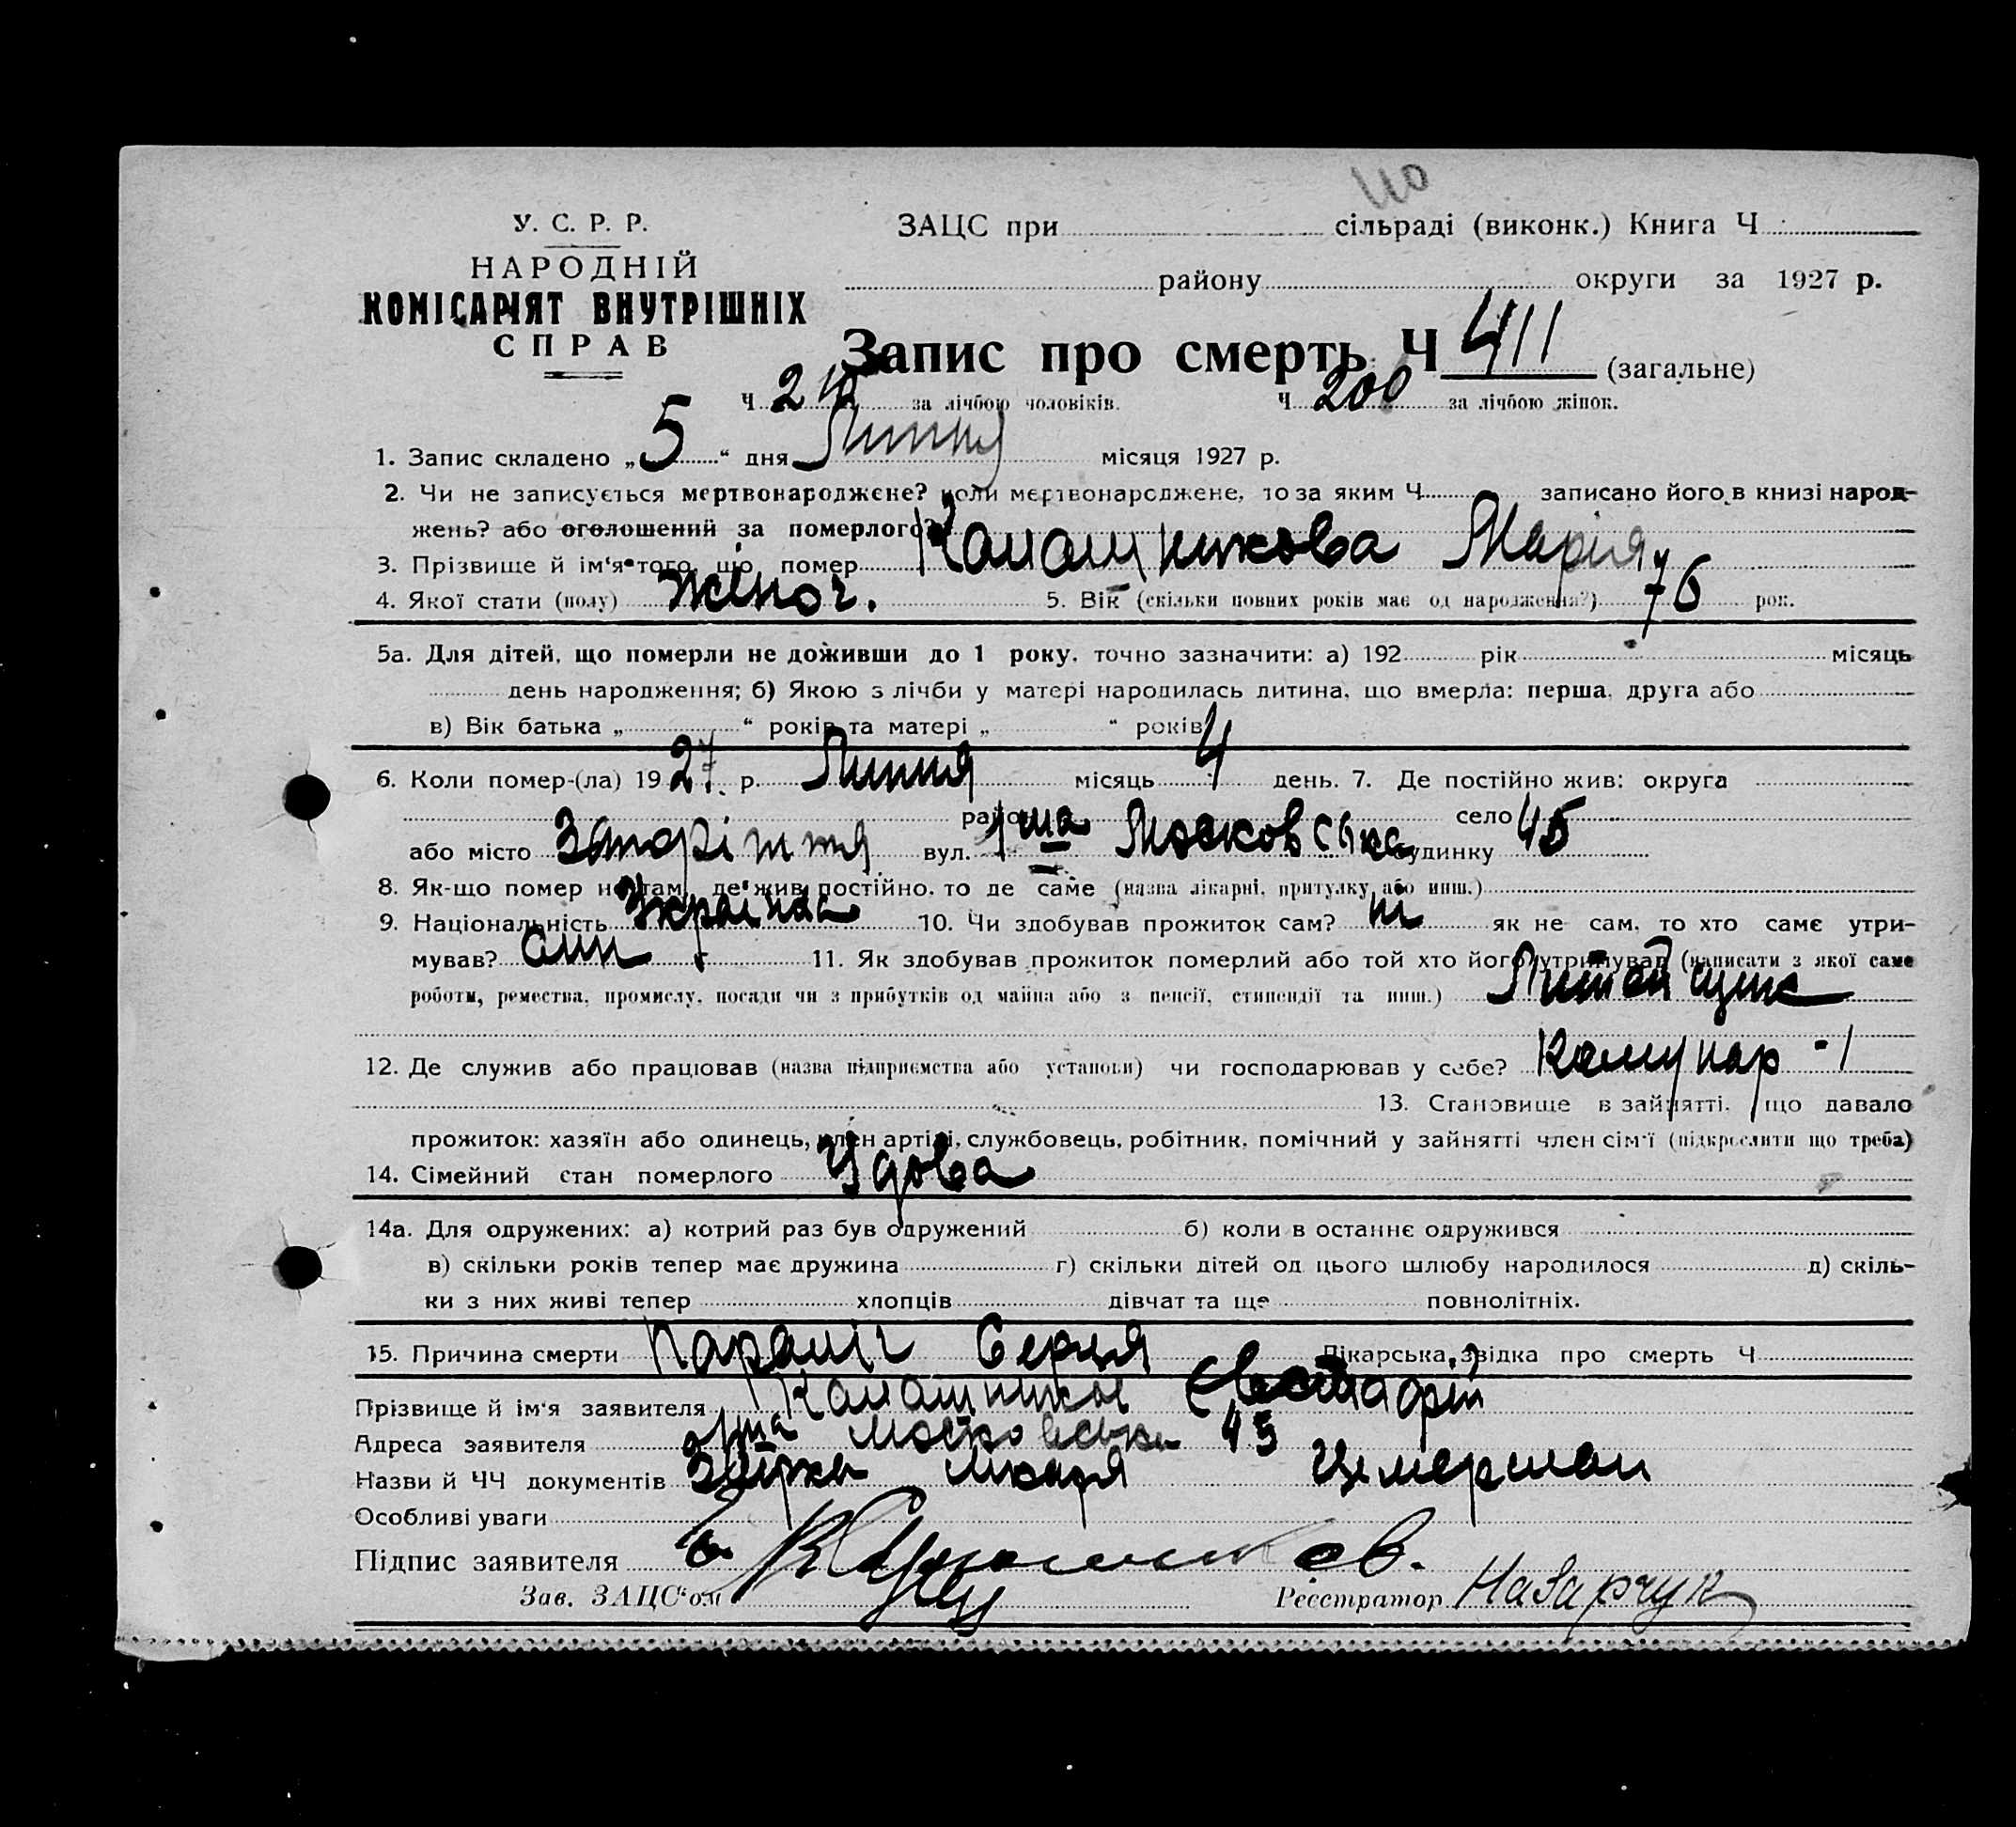 У. С. Р. Р.
НАРОДНІЙ
КОМІСАРІЯТ ВНУТРІШНІХ
СПРАВ
ЗАЦС при сільраді (виконк.) Книга Ч
району округи за 1927 р.
Запис про смерть Ч 411 (загальне)
Ч за лічбою чоловіків. Ч 200 за лічбою жінок.
1. Запис складено „5“ дня Липня місяця 1927 р.
2. Чи не записується мертвонароджене? коли мертвонароджене, то за яким Ч записано його в книзі народ-
жень? або оголошений за померлого?
3. Прізвище й ім'я того, що помер Калашникова Марія
4. Якої стати (полу) жіноч. 5. Вік (скільки повних років має од народження?) 76 рок.
5а. Для дітей, що померли не доживши до 1 року, точно зазначити: а) 192 рік місяць
день народження; б) Якою з лічби у матері народилась дитина, що вмерла: перша, друга або
в) Вік батька „ “ років та матері „ “ років
6. Коли помер-(ла) 1927 р. Липня місяць 4 день. 7. Де постійно жив: округа
район село
або місто Запоріжжя вул. 1ша Московська будинку 45
8. Як-що помер не там, де жив постійно, то де саме (назва лікарні, притулку або инш.)
9. Національність Україн 10. Чи здобував прожиток сам? ні як не сам, то хто саме утри-
мував? син 11. Як здобував прожиток померлий або той хто його утримував (написати з якої саме
роботи, ремества, промислу, посади чи з прибутків од майна або з пенсії, стипендії та инш.)
12. Де служив або працював (назва підприємства або установи) чи господарював у себе? Комунар - 1
13. Становище в зайнятті, що давало
прожиток: хазяїн або одинець, член артілі, службовець, робітник, помічний у зайнятті член сім'ї (підкреслити що треба)
14. Сімейний стан померлого Удова
14а. Для одружених: а) котрий раз був одружений б) коли в останнє одружився
в) скільки років тепер має дружина г) скільки дітей од цього шлюбу народилося д) скіль-
ки з них живі тепер хлопців дівчат та ще повнолітніх.
15. Причина смерти Параліч Серця Лікарська звідка про смерть Ч
Прізвище й ім'я заявителя Калашников Євстафій
Адреса заявителя 1ша Московська 45
Назви й ЧЧ документів лікаря Цимерман
Особливі уваги
Підпис заявителя
Зав. ЗАЦС'ом Реєстратор Назарчук